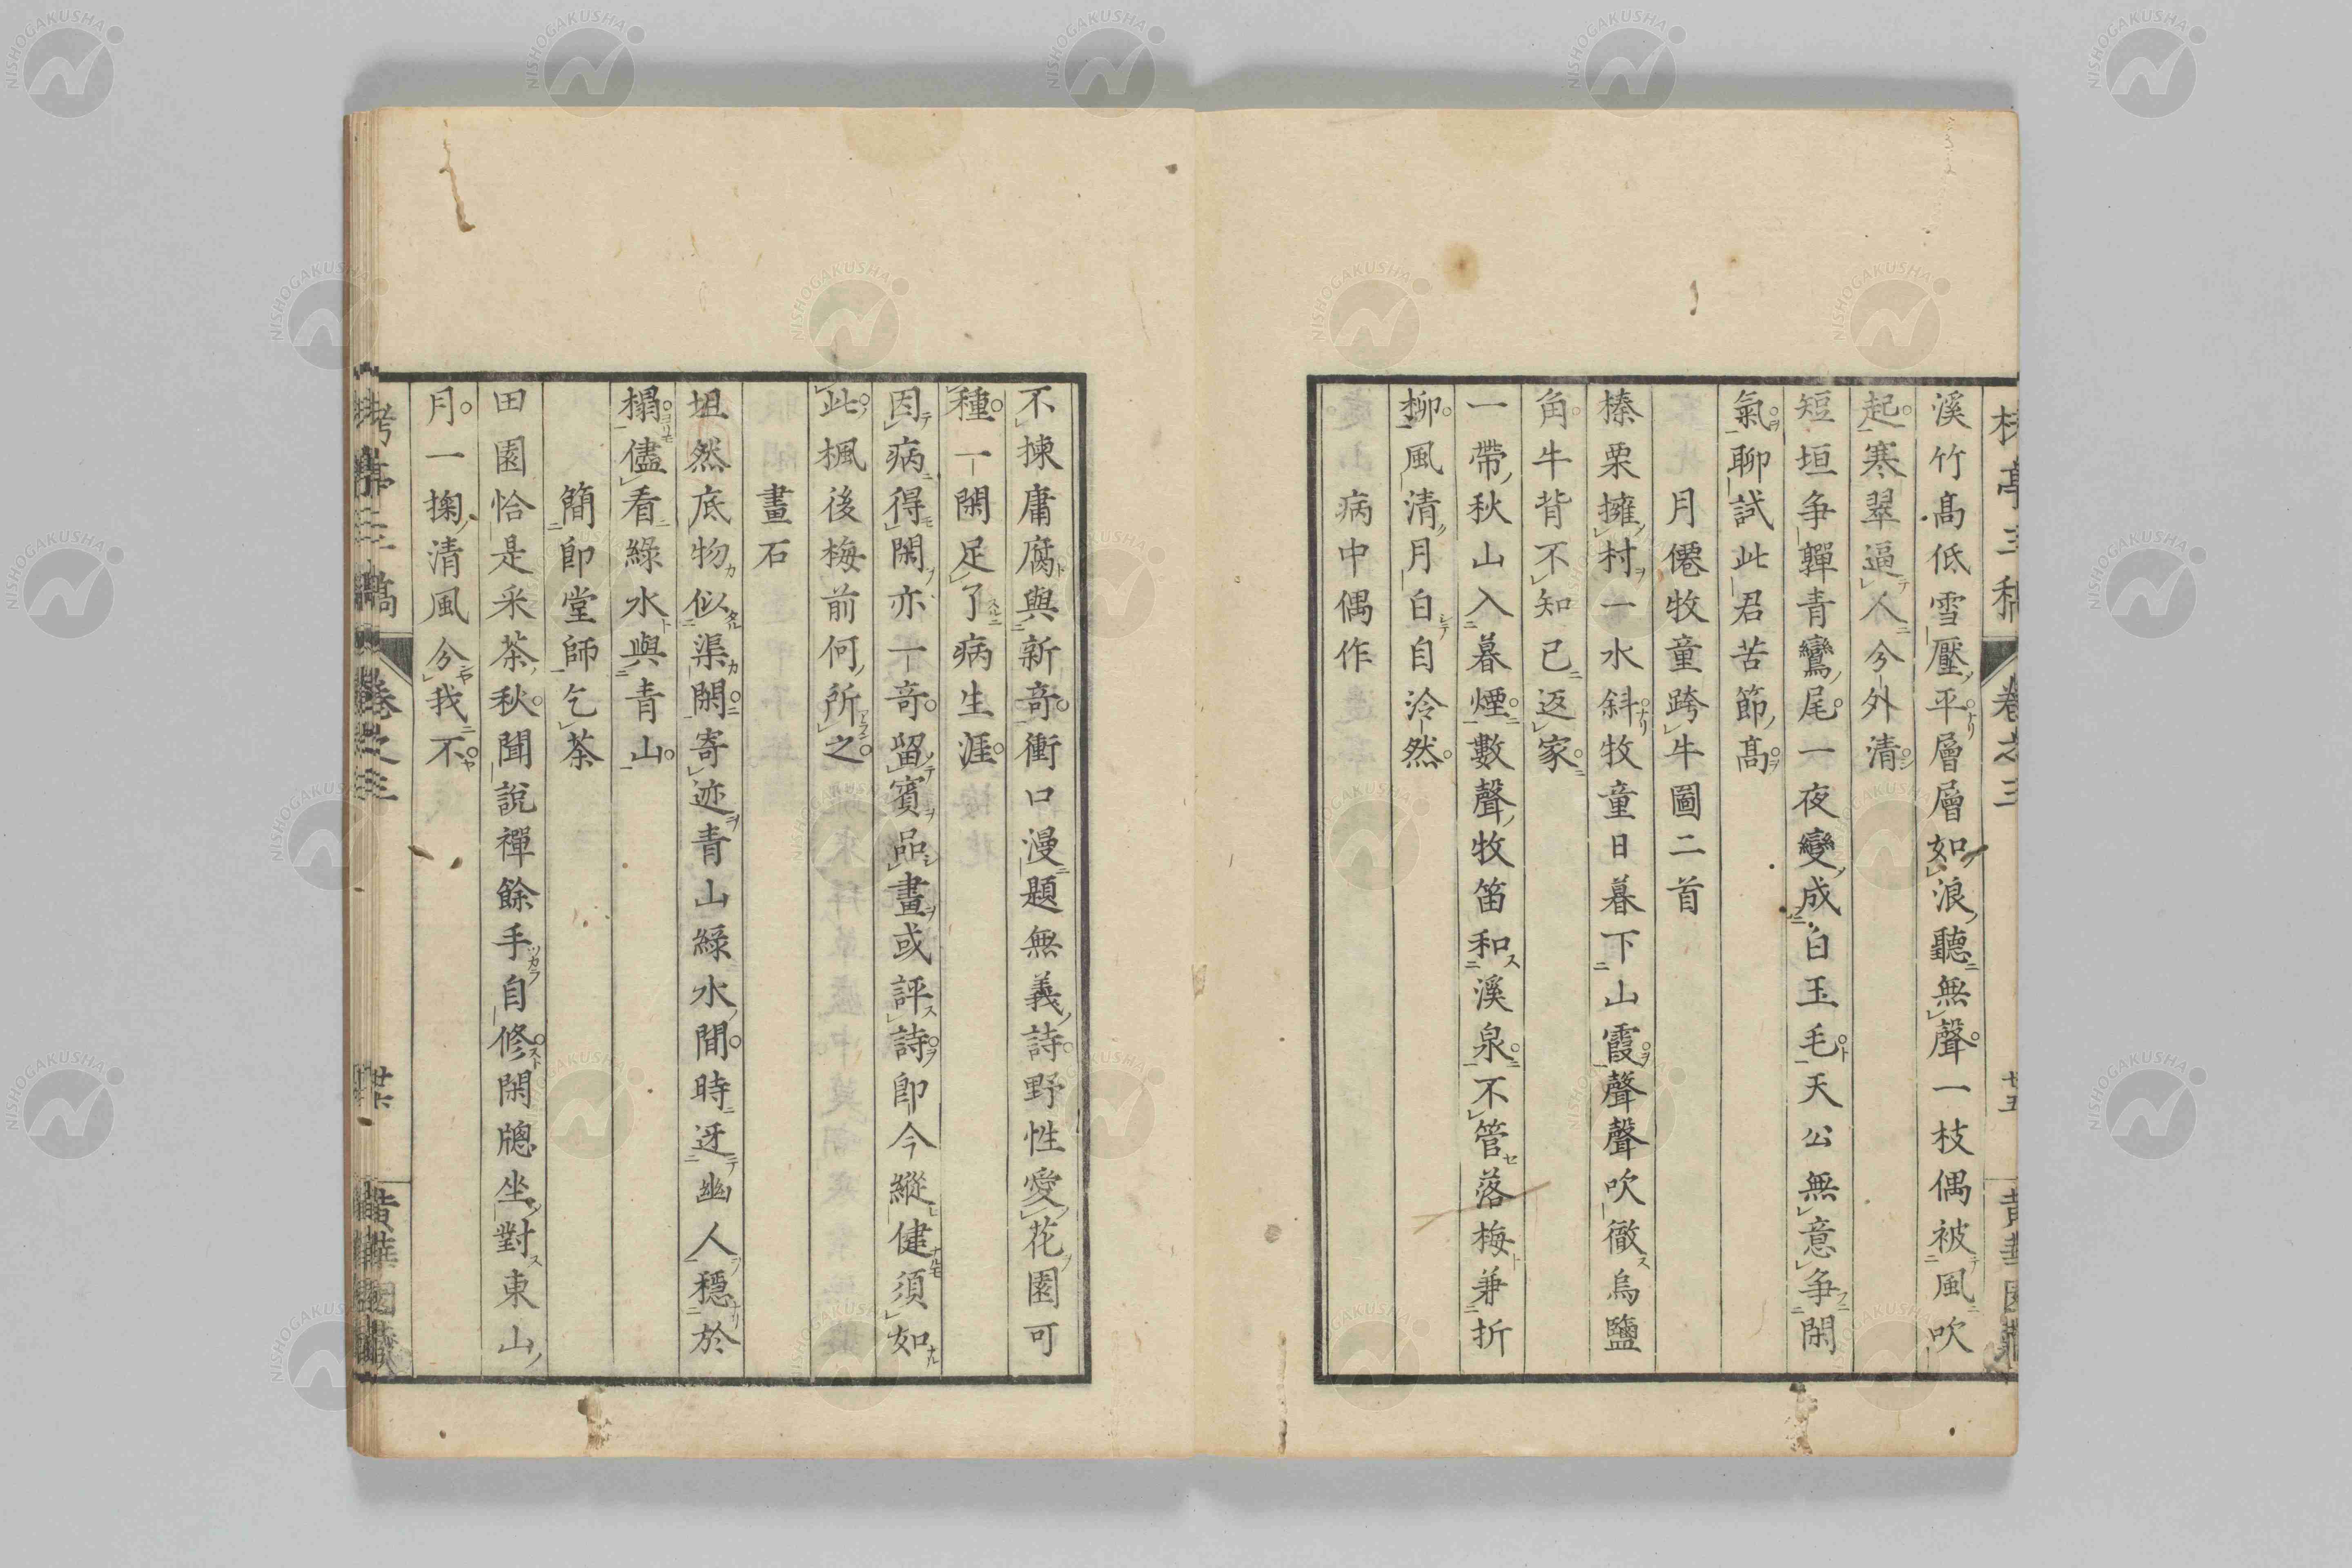 溪竹髙低雪壓平層層如浪聽無聲一枝偶被風吹
起寒翠逼人分外清
短垣争嚲青鸞尾一夜變成白玉毛天公無意争閑
氣聊試此君苦節髙
月僊牧童跨牛圖二首
榛栗擁村一水斜牧童日暮下山霞聲聲吹徹烏鹽
角牛背不知已返家
一帶秋山入暮煙數聲牧笛和溪泉不管落梅兼折
柳風清月白自泠然
病中偶作
不揀庸腐與新竒衝口漫題無義詩野性愛花園可
種一閑足了病生涯
因病得閑亦一竒留賓品畫或評詩即今縱健須如
此楓後梅前何所之
畫石
坦然底物似渠閑寄迹青山綠水間時迓幽人穩於
榻儘看綠水與青山
簡即堂師乞茶
田園恰是采茶秋聞說禪餘手自修閑牕坐對東山
月一掬清風分我不
卷之三
NISHOGAKUSHA